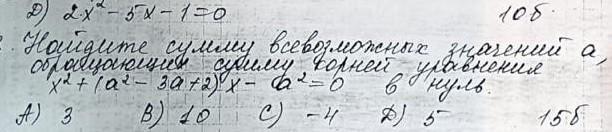 Д) 2x² - 5x - 1 = 0 10б.
Найдите сумму всевозможных значений а,
обращающих сумму корней уравнения
x² + (a² - 3a + 2) x - a² = 0 в нуль.
A) 3 B) 10 C) -4 Д) 5 15б